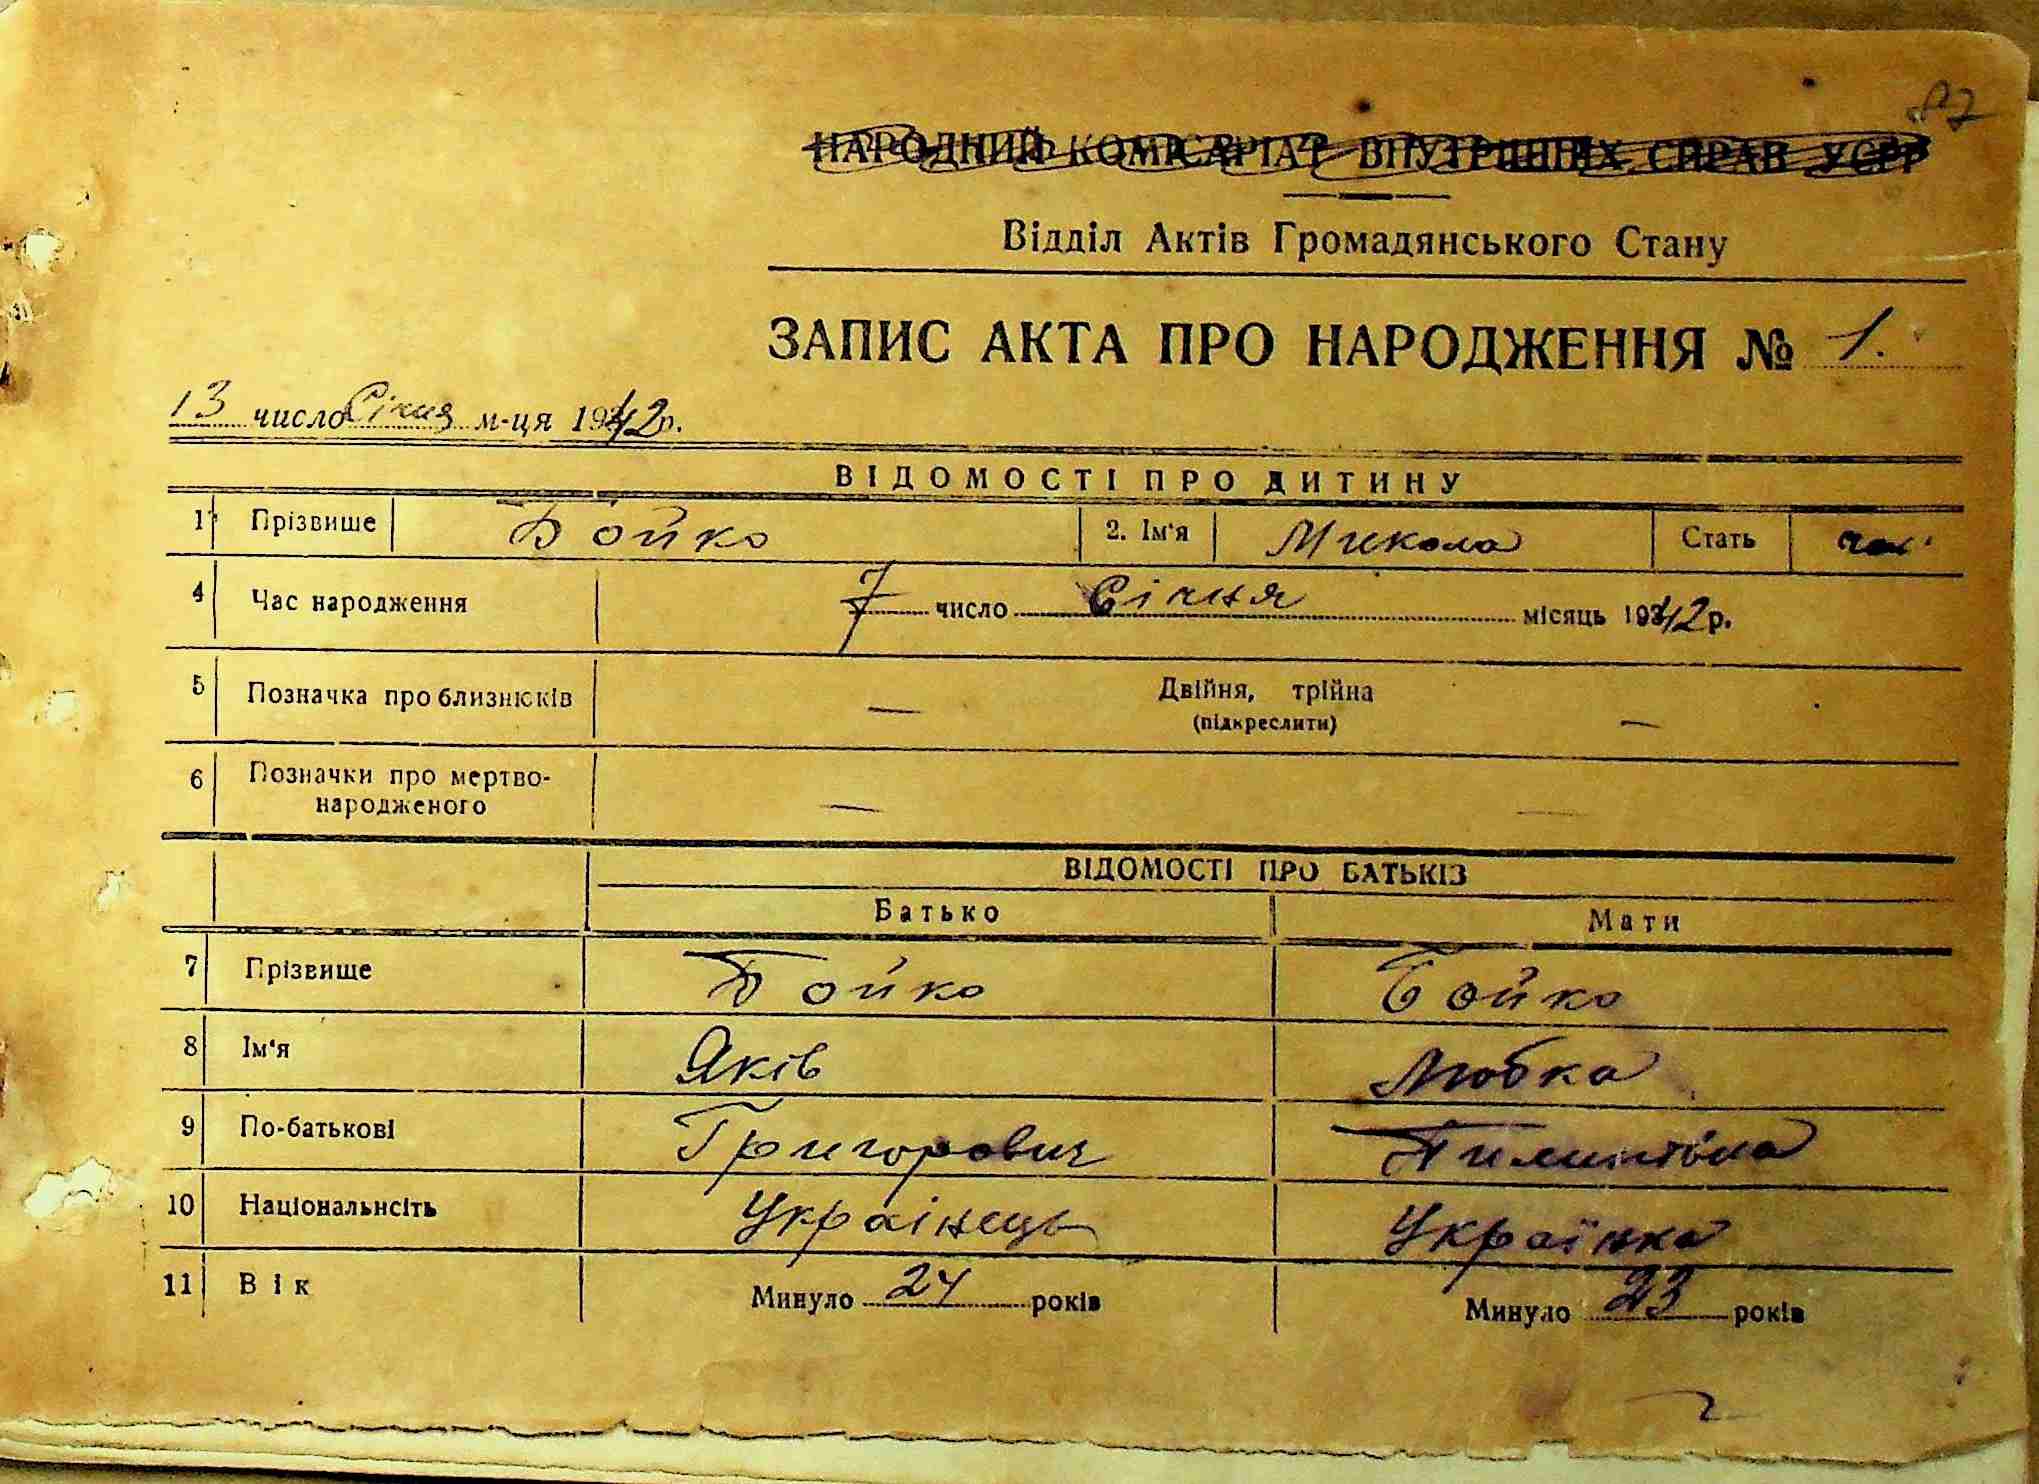 87
НАРОДНИЙ КОМІСАРІАТ ВНУТРІШНІХ СПРАВ УСРР
Відділ Актів Громадянського Стану
ЗАПИС АКТА ПРО НАРОДЖЕННЯ № 1.
13 число Січня м-ця 1942 р.
ВІДОМОСТІ ПРО ДИТИНУ
1 Прізвише Бойко 2. Ім'я Микола Стать чол.
4 Час народження 7 число Січня місяць 1942 р.
5 Позначка про близнюків — Двійня, трійна —
(підкреслити)
6 Позначки про мертво-
народженого — —
ВІДОМОСТІ ПРО БАТЬКІВ
Батько Мати
7 Прізвище Бойко Бойко
8 Ім'я Яків Любка
9 По-батькові Григорович
10 Національнсіть Українець Українка
11 Вік Минуло 24 років Минуло 23 років